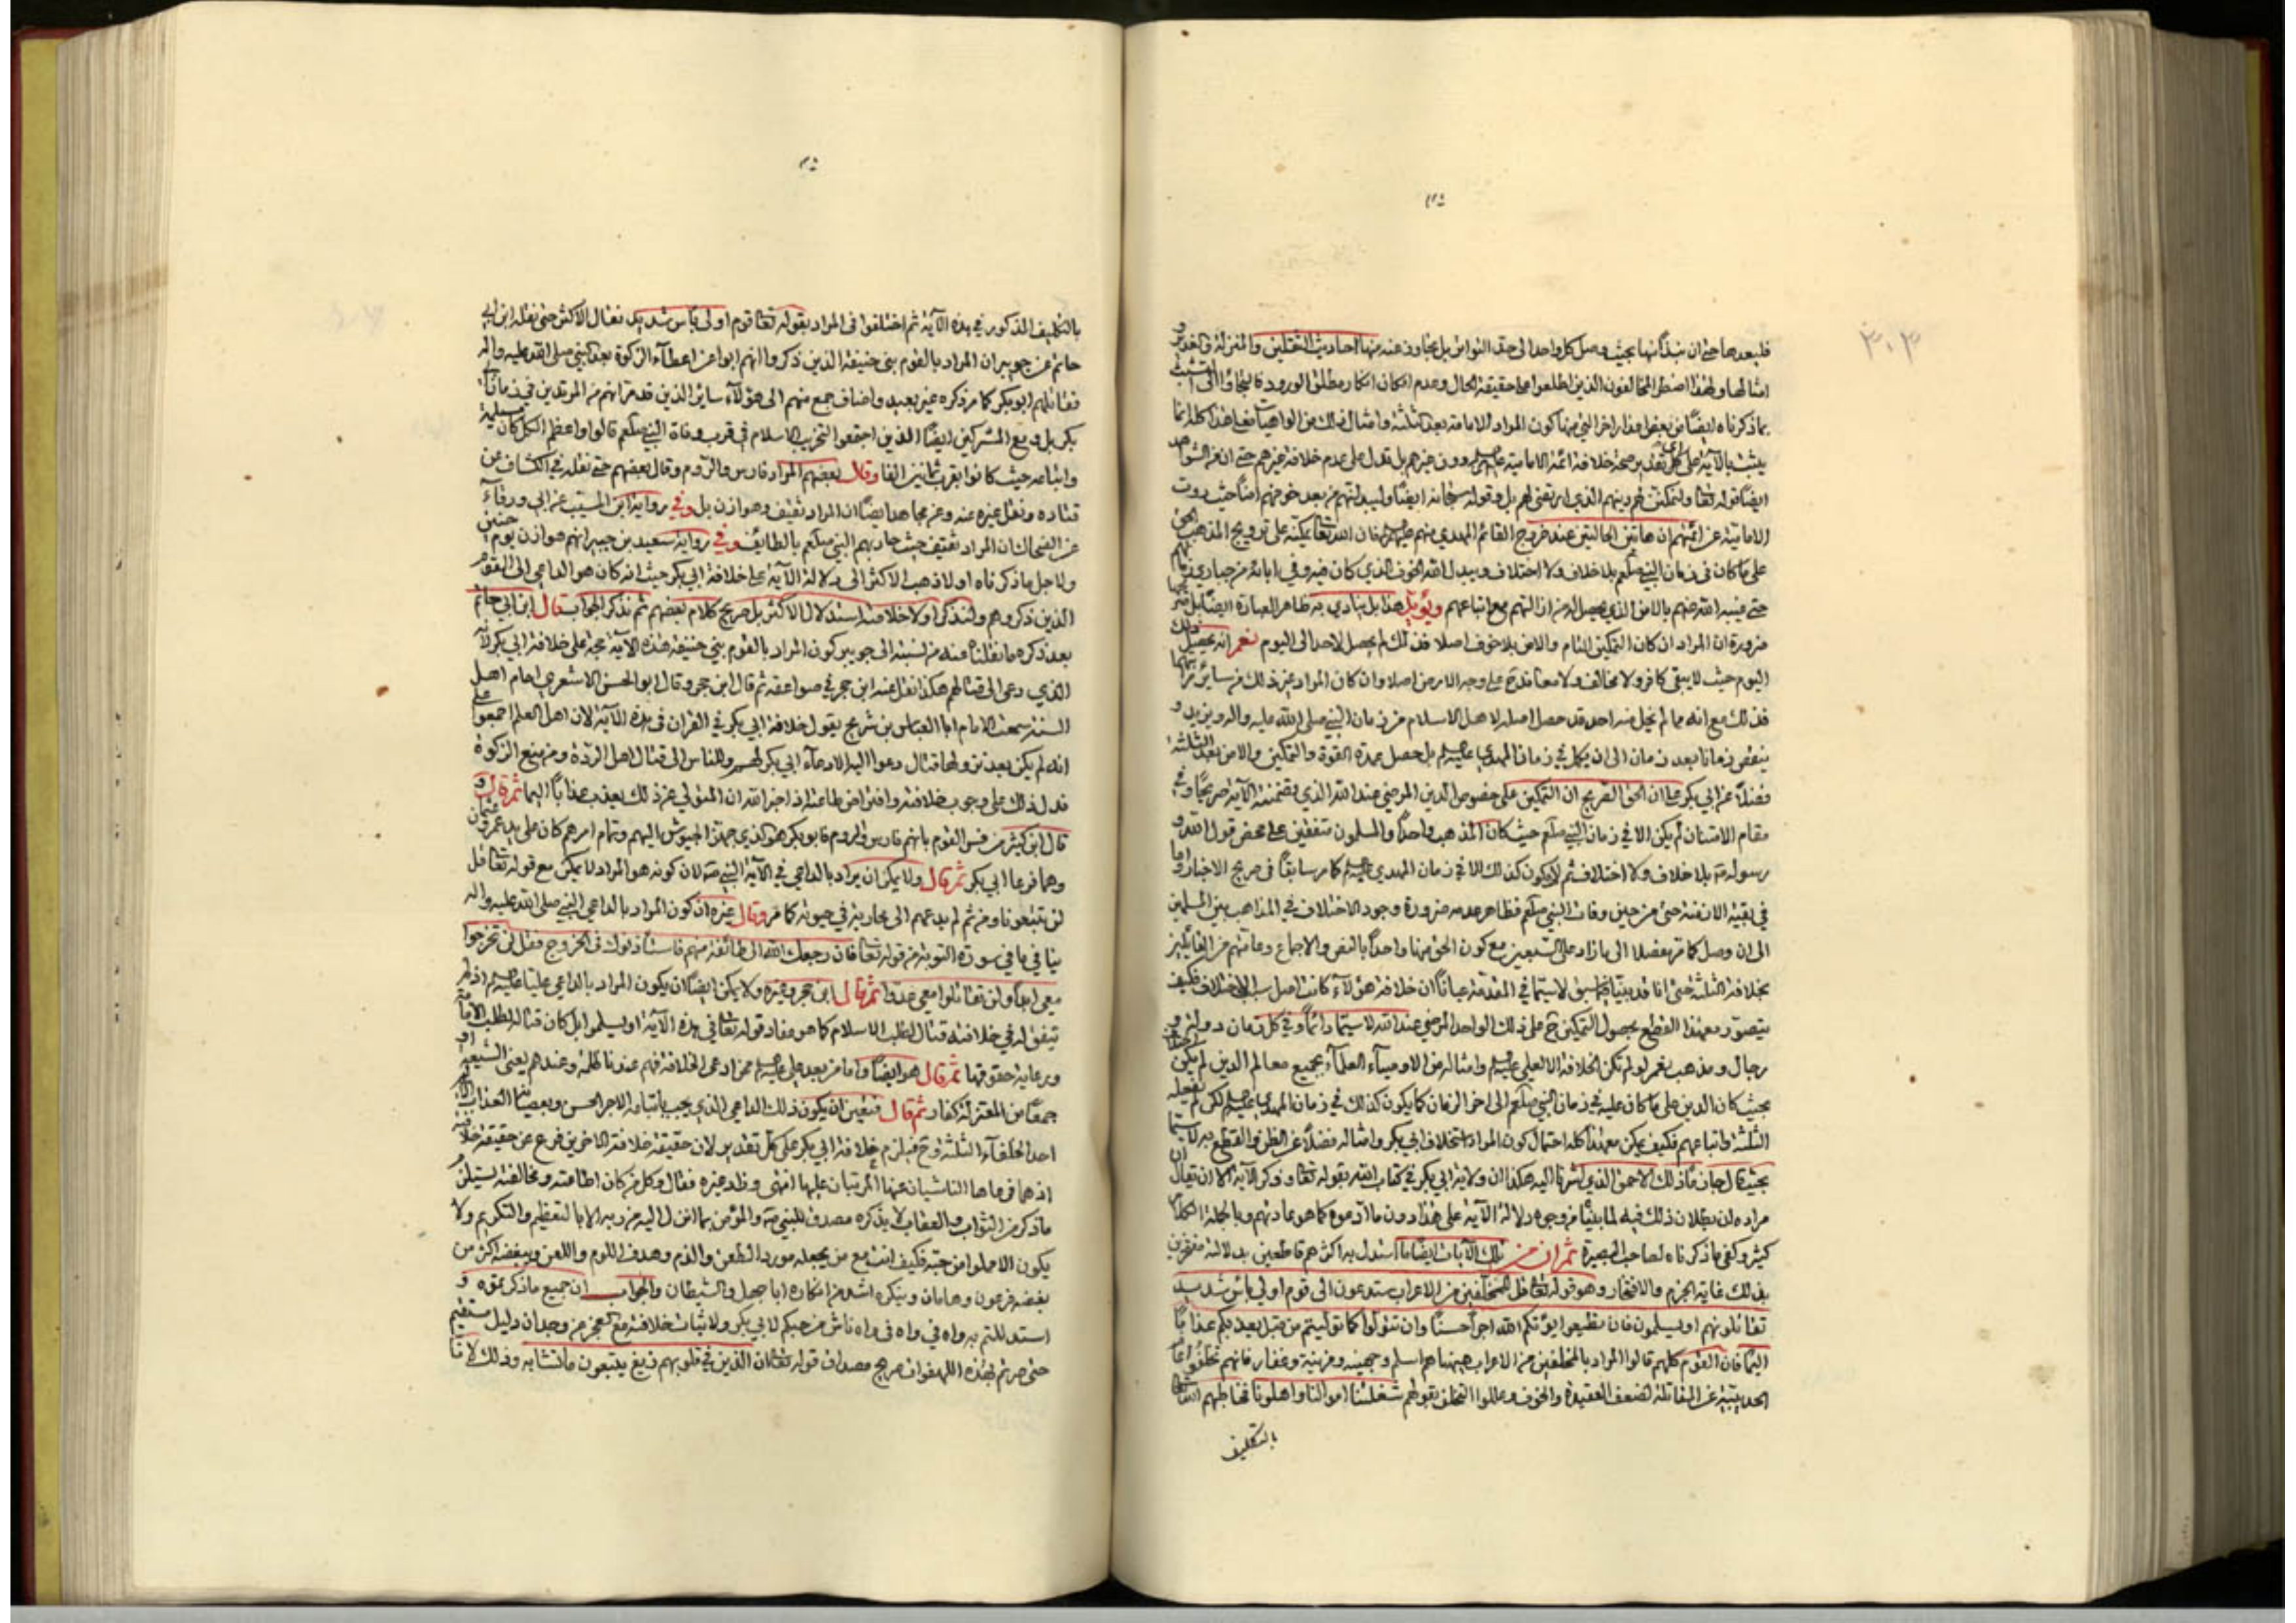 ٣٠٣
فلبعدها حتى ان نبذاً منها بحيث وصل كل واحد الى حد التواتر بل تجاوز عنه منها احاديث الثقلين والمنزلة والغدير و
امثالها ولهذا اضطر المخالفون الذين اطلعوا على حقيقة الحال وعدم امكان انكار مطلق الورود فالتجاؤا الى التشبث
بما ذكرناه ايضاً من بعض اعذار اخر التي منها كون المراد الامامة بعد الثلثة وامثال ذلك من الواهيات مع ان هذا كله انما
يثبت بالآية على اي تقدير صحة خلافة ائمة الامامية دون غيرهم بل تدل على عدم خلافة غيرهم حتى ان من الشواهد
ايضاً قوله تعالى وليمكنن لهم دينهم الذي ارتضى لهم بل وقوله سبحانه ايضاً وليبدلنهم من بعد خوفهم امناً حيث روت
الامامية عن ائمتهم ان هاتين الحالتين عند خروج القائم المهدي منهم فان الله تعالى يمكنه على ترويج المذهب الحق
على ما كان في زمان النبي صلعم بلا خلاف ولا اختلاف ويبدل الله الخوف الذي كان فيه وفي ابائه من جبابرة زمانهم
حتى غيبه الله عنهم بالامن الذي يحصل له من ازالتهم مع اتباعهم ويؤيد هذا بل ينادي به ظاهر العبارة ايضاً بل
ضرورة ان المراد ان كان التمكين التام والامن بلا خوف اصلا فذلك لم يحصل لاحد الى اليوم نعم انه يحصل ذلك
اليوم حيث لا يبقى كافر ولا مخالف ولا معاند على وجه الارض اصلا وان كان المراد غير ذلك من سائر مراتبها
فذلك مع انه مما لم يخل منه احد قد حصل اصله لاهل الاسلام من زمان النبي صلى الله عليه واله ويزيد و
ينقص زمانا بعد زمان الى ان يكمل في زمان المهدي بل حصل عمدة القوة والتمكين والامن بعد الثلثة
فضلاً عن ابي بكر على ان الحق الصريح ان التمكين على خصوص الدين المرضي عند الله الذي تضمنته الآية صريحاً وفي
مقام الامتنان لم يكن الا في زمان النبي صلعم حيث كان المذهب واحداً والمسلمون متفقين على محض قول الله و
رسوله بلا خلاف ولا اختلاف ثم لا يكون كذلك الا في زمان المهدي كما مر سابقاً في صريح الاخبار واما
في بقية الازمنة حتى من حين وفات النبي صلعم فظاهر عدمه ضرورة وجود الاختلاف في المذاهب بين المسلمين
الى ان وصل كما مر مفصلا الى ما زاد على السبعين مع كون الحق منها واحداً بالنص والاجماع وعامتهم من القائلين
بخلافة الثلثة حتى انا قد بينا فيما سبق لا سيما في المقدمة عياناً ان خلافة هؤلاء كانت اصل سبب الاختلاف فكيف
يتصور مع هذا القطع بحصول التمكين ح على ذلك الواحد المرضي عند الله لا سيما دائماً وفي كل زمان دولة و
رجال ومذهب نعم لو لم تكن الخلافة الا لعلي وامثاله من الاوصياء العلماء بجميع معالم الدين لم يكن
بحيث كان الدين على ما كان عليه في زمان النبي صلعم الى اخر الزمان كما يكون كذلك في زمان المهدي لكن لم يفعله
الثلثة واتباعهم فكيف يمكن مع هذا كله احتمال كون المراد استخلاف ابي بكر وامثاله فضلاً عن الظن والقطع به لا سيما
بحيث قال جازماً ذلك الاحمق الذي اشرنا اليه هكذا ان ولاية ابي بكر في كتاب الله بقوله تعالى وذكر الآية الا ان يقال ان
مراده ان بطلان ذلك فيه لما بينا من وجوه دلالة الآية على هذا دون ما ادعوه كما هو عادتهم وبالجملة الكلام
كثير وكفى ما ذكرناه لصاحب البصيرة ثم ان من تلك الآيات ايضاً ما استدل به اكثرهم قاطعين بدلالته مفتخرين
بذلك غاية الجزم والافتخار وهو قوله تعالى قل للمخلفين من الاعراب ستدعون الى قوم اولي بأس شديد
تقاتلونهم او يسلمون فان تطيعوا يؤتكم الله اجراً حسناً وان تتولوا كما توليتم من قبل يعذبكم عذاباً
اليماً فان القوم كلهم قالوا المراد بالمخلفين من الاعراب هيهنا هم اسلم وجهينة ومزينة وغفار فانهم تخلفوا عام
الحديبية عن المقاتلة لضعف العقيدة والخوف وعللوا التخلف بقولهم شغلتنا اموالنا واهلونا فخاطبهم الله تعالى
بالتكليف
بالتكليف المذكور في هذه الآية ثم اختلفوا في المراد بقوله تعالى قوم اولي بأس شديد فقال الاكثر حتى نقله ابن ابي
حاتم عن جويبر ان المراد بالقوم بني حنيفة الذين ذكروا انهم ابوا عن اعطاء الزكوة بعد النبي صلى الله عليه واله
فقاتلهم ابو بكر كما مر ذكره غير بعيد واضاف جمع منهم الى هؤلاء سائر الذين قد مر انهم من المرتدين في زمان ابي
بكر بل ومع المشركين ايضاً الذين اجتمعوا لتخريب الاسلام في قرب وفاة النبي صلعم قالوا واعظم الكل كان مسيلمة
واتباعه حيث كانوا بقرب ثمانين الفا وقال بعضهم المراد فارس والروم وقال بعضهم حتى نقله في الكشاف عن
قتادة ونقل غيره عنه وعن مجاهد ايضاً ان المراد ثقيف وهوازن بل وفي رواية ابن المسيب عن ابي ورقاء
عن الضحاك ان المراد ثقيف حيث حاربهم النبي صلعم بالطائف وفي رواية سعيد بن جبير انهم هوازن يوم حنين
ولاجل ما ذكرناه اولا ذهب الاكثر الى دلالة الآية على خلافة ابي بكر حيث انه كان هو الداعي الى القوم
الذين ذكروهم ولنذكر اولا خلاصة استدلال الاكثر بل صريح كلام بعضهم ثم نذكر الجواب قال ابن ابي حاتم
بعد ذكره ما نقلناه عنه من نسبته الى جويبر كون المراد بالقوم بني حنيفة هذه الآية حجة على خلافة ابي بكر لانه
الذي دعى الى قتالهم هكذا نقل عنه ابن حجر في صواعقه ثم قال ابن حجر وقال ابو الحسن الاشعري امام اهل
السنة سمعت الامام ابا العباس بن شريح يقول خلافة ابي بكر في القران في هذه الآية لان اهل العلم اجمعوا على
انه لم يكن بعد نزولها قتال دعوا اليه الا دعاء ابي بكر لهم وللناس الى قتال اهل الردة ومن منع الزكوة
فدل ذلك على وجوب خلافته وافتراض طاعته اذ اخبر الله ان المتولي عن ذلك يعذب عذاباً اليما ثم قال و
قال ابن كثير من فسر القوم بانهم فارس والروم فابو بكر هو الذي جهز الجيوش اليهم وتمام امرهم كان على يد عمر وعثمان
وهما فرعا ابي بكر ثم قال ولا يمكن ان يراد بالداعي في الآية النبي صه لان كونه هو المراد لا يمكن مع قوله تعالى قل
لن تتبعونا ومن ثم لم يدعهم الى محاربة في حيوته كما مر وقال غيره ان كون المراد بالداعي النبي صلى الله عليه واله
ينافي ما في سورة التوبة من قوله تعالى فان رجعك الله الى طائفة منهم فاستأذنوك في الخروج فقل لن تخرجوا
معي ابداً ولن تقاتلوا معي عدوا ثم قال ابن حجر وغيره ولا يمكن ايضاً ان يكون المراد بالداعي علياً اذ لم
يتفق له في خلافته قتال لطلب الاسلام كما هو مفاد قوله تعالى في هذه الآية او يسلموا بل كان قتاله لطلب الامامة
ورعاية حقوقها ثم قال هو ايضاً واما من بعد علي ممن ادعى الخلافة فهم عندنا ظلمة وعندهم يعني الشيعة و
جمعاً من المعتزلة كفار ثم قال فتعين ان يكون ذلك الداعي الذي يجب باتباعه الاجر الحسن وبعصيانه العذاب الاليم
احد الخلفاء الثلثة وح فيلزم خلافة ابي بكر على كل تقدير لان حقيقة خلافة الاخرين فرع عن حقيقة خلافته
اذ هما فرعاها الناشيان عنها المرتبان عليها انتهى وزاد غيره فقال وكل من كان اطاعته ومخالفته يستلزم
ما ذكر من الثواب والعقاب لا يذكره مصدق للنبي صه والمؤمن بما انزل اليه من ربه الا بالتعظيم والتكريم ولا
يكون الا مملوا من حبه فكيف انت مع من يجعله مورد الطعن والذم وهدف اللوم واللعن ويبغضه اكثر من
بغضه فرعون وهامان وينكره اشد من انكاره ابا جهل والشيطان والجواب ان جميع ما ذكرتموه و
استدللتم به واه في واه في واه ناش من حبكم لابي بكر ولاثبات خلافته مع العجز من وجدان دليل مستقيم
حتى صرتم بهذه اللهفوات صريح مصداق قوله تعالى ان الذين في قلوبهم زيغ يتبعون ما تشابه وذلك لانا